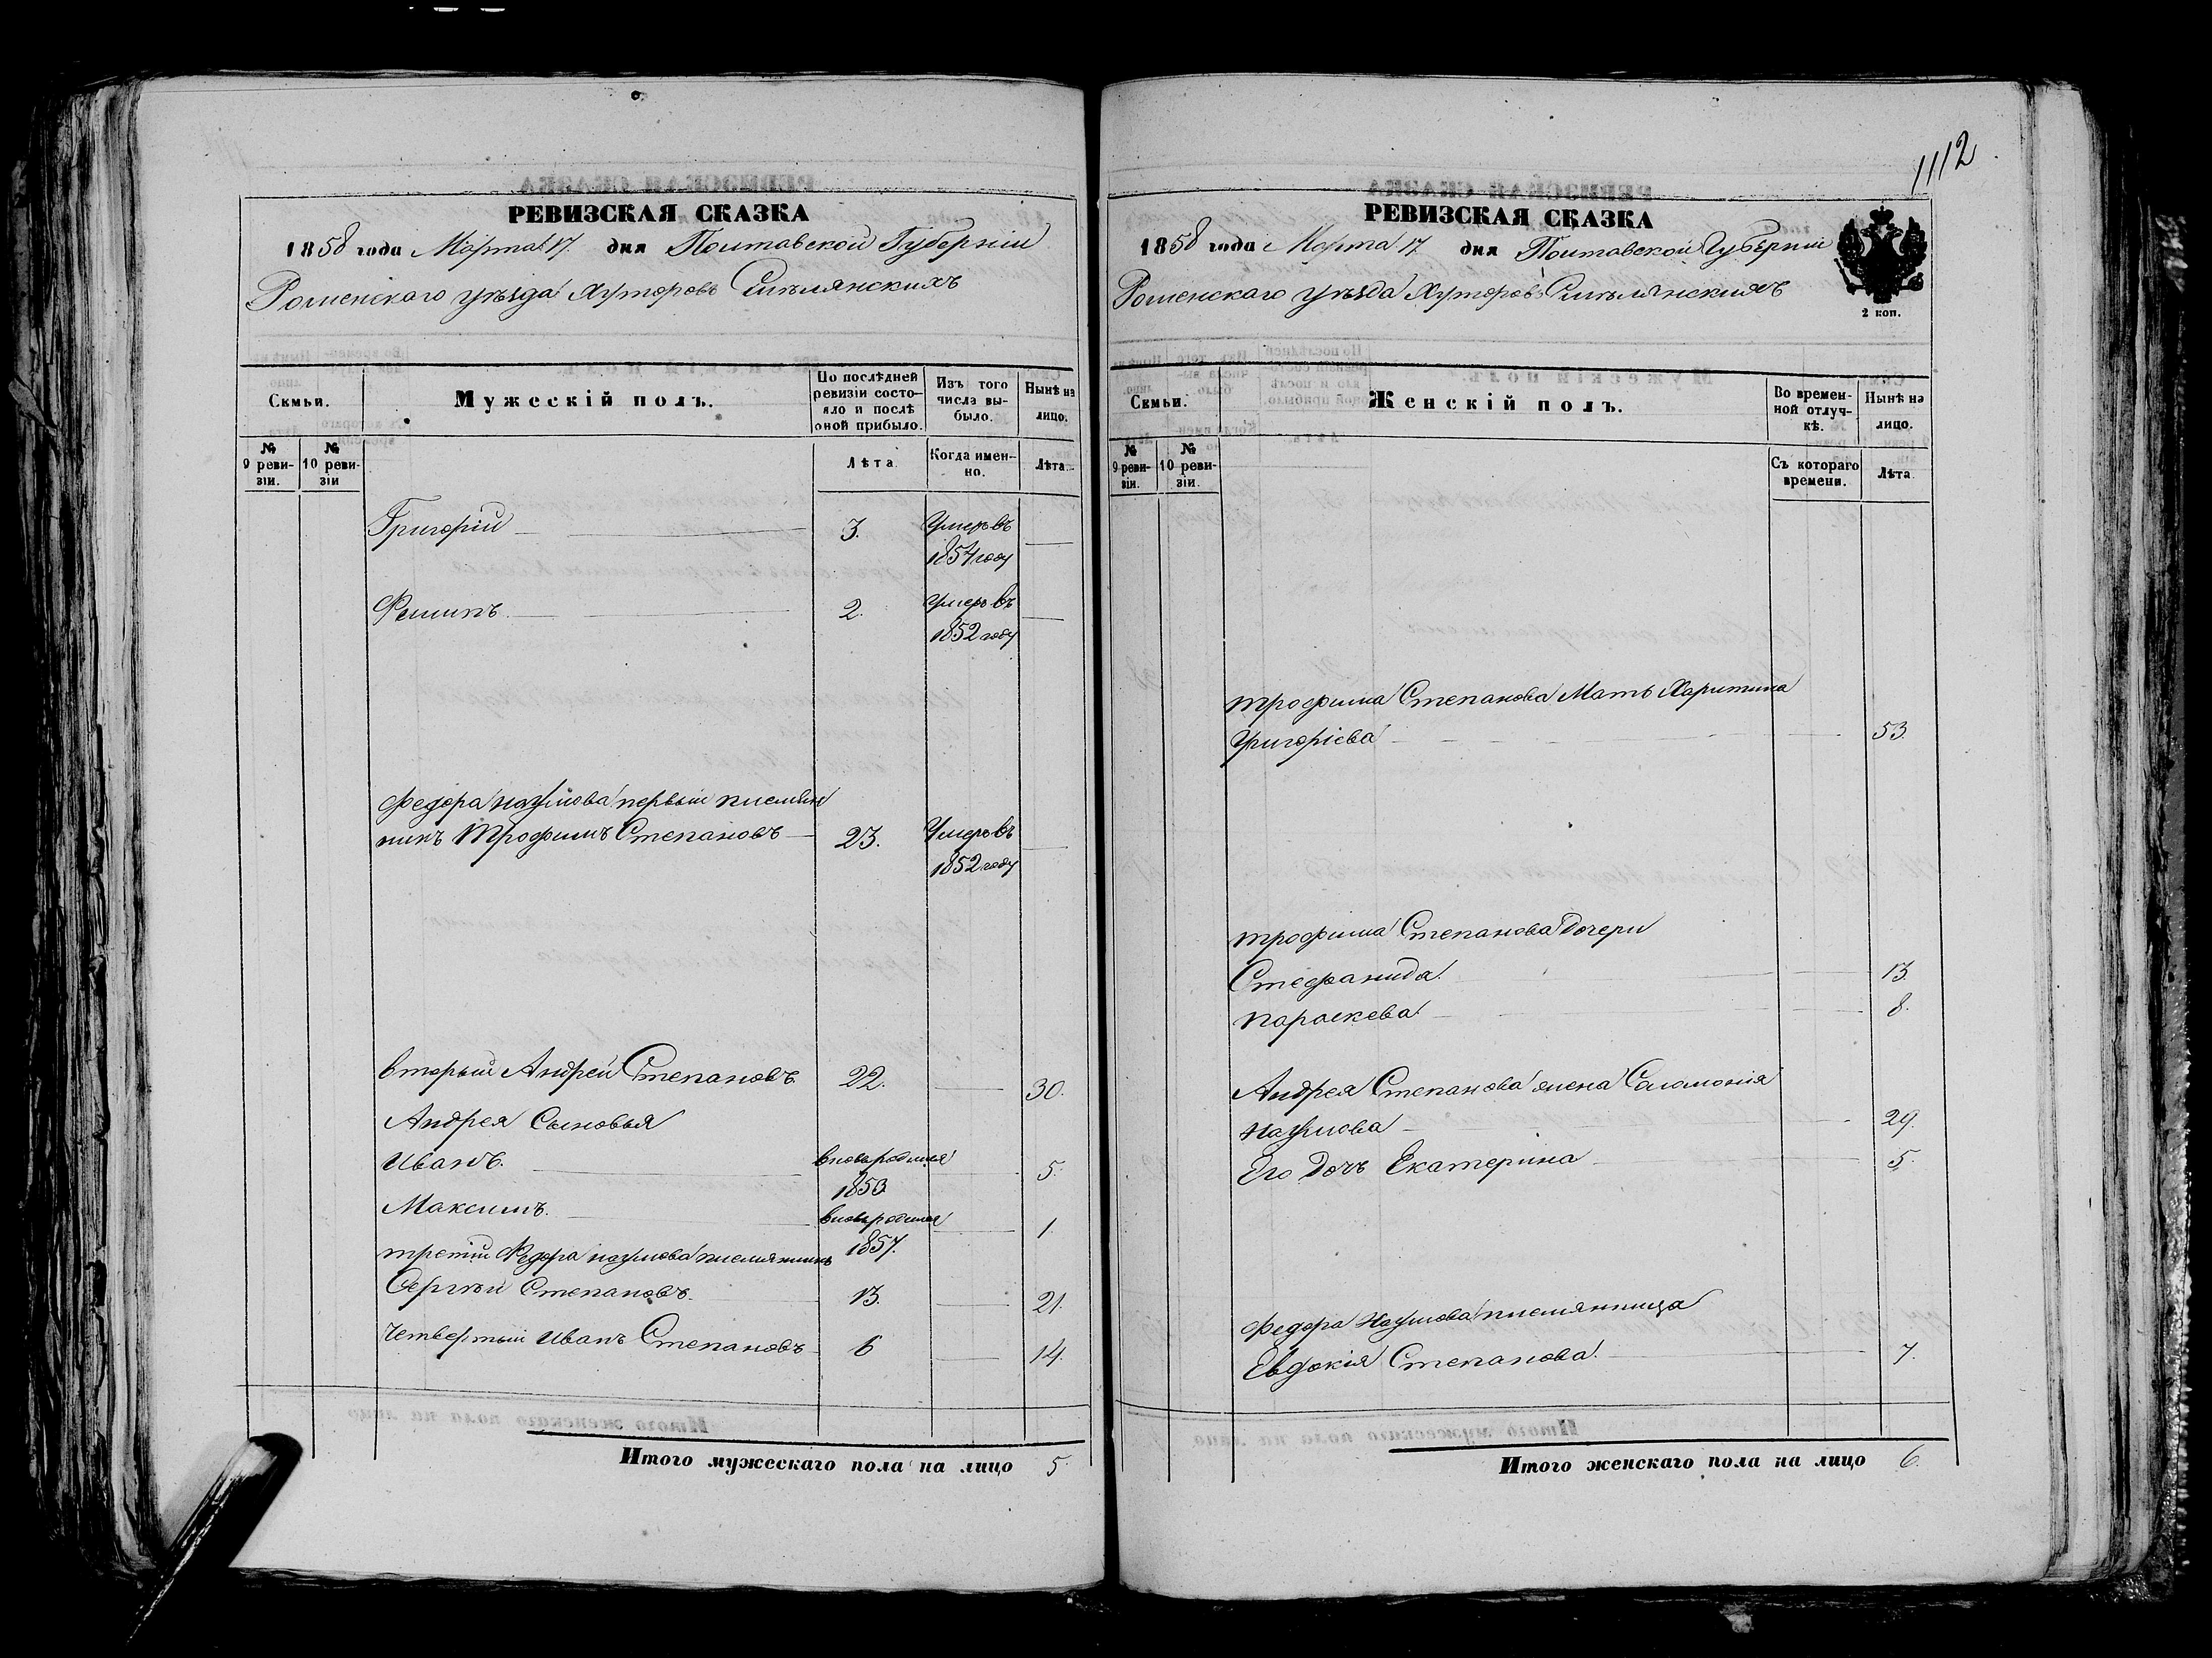 РЕВИЗСКАЯ СКАЗКА
1858 года Марта 17. дня Полтавской Губерніи
Роменскаго уѣзда Хуторовъ Смѣлянскихъ
Семьи.
Мужескій полъ.
По послѣдней ревизіи состояло и послѣ оной прибыло.
Изъ того числа выбыло.
Нынѣ на лицо.
№ 9 ревизіи.
№ 10 ревизіи
Лѣта
Когда именно.
Лѣта.
Григорій 3. Умеръ въ
1854 году
Филипъ. 2. Умеръ въ
1852 году
Федора Наумова первый племян
никъ Трофимъ Степановъ 23. Умеръ въ
1852 году
вторый Андрей Степановъ. 22. 30.
Андрея Сыновья
Иванъ. вновьродился 5.
1853
Максимъ. вновьродился 1.
1857.
третій Федора Наумова племянникъ
Сергѣй Степановъ. 13. 21.
четвертый Иванъ Степановъ 6 14.
Итого мужескаго пола на лицо 5.
1112
РЕВИЗСКАЯ СКАЗКА
1858 года Марта 17. дня Полтавской Губерніи
Роменскаго уѣзда Хуторовъ Смѣлянскихъ
2 коп.
Семьи.
Женскій полъ.
Во временной отлучкѣ.
Нынѣ на лицо.
№ 9 ревизіи.
№ 10 ревизіи.
Съ котораго времени.
Лѣта
Трофима Степанова Мать Харитина
Григоріева 53.
Трофима Степанова Дочери
Стефанида 13.
Параскева 8.
Андрея Степанова жена Саломонія
Наумова 29.
Его Дочь Екатерина 5.
Федора Наумова племянница
Евдокія Степанова. 7.
Итого женскаго пола на лицо 6.